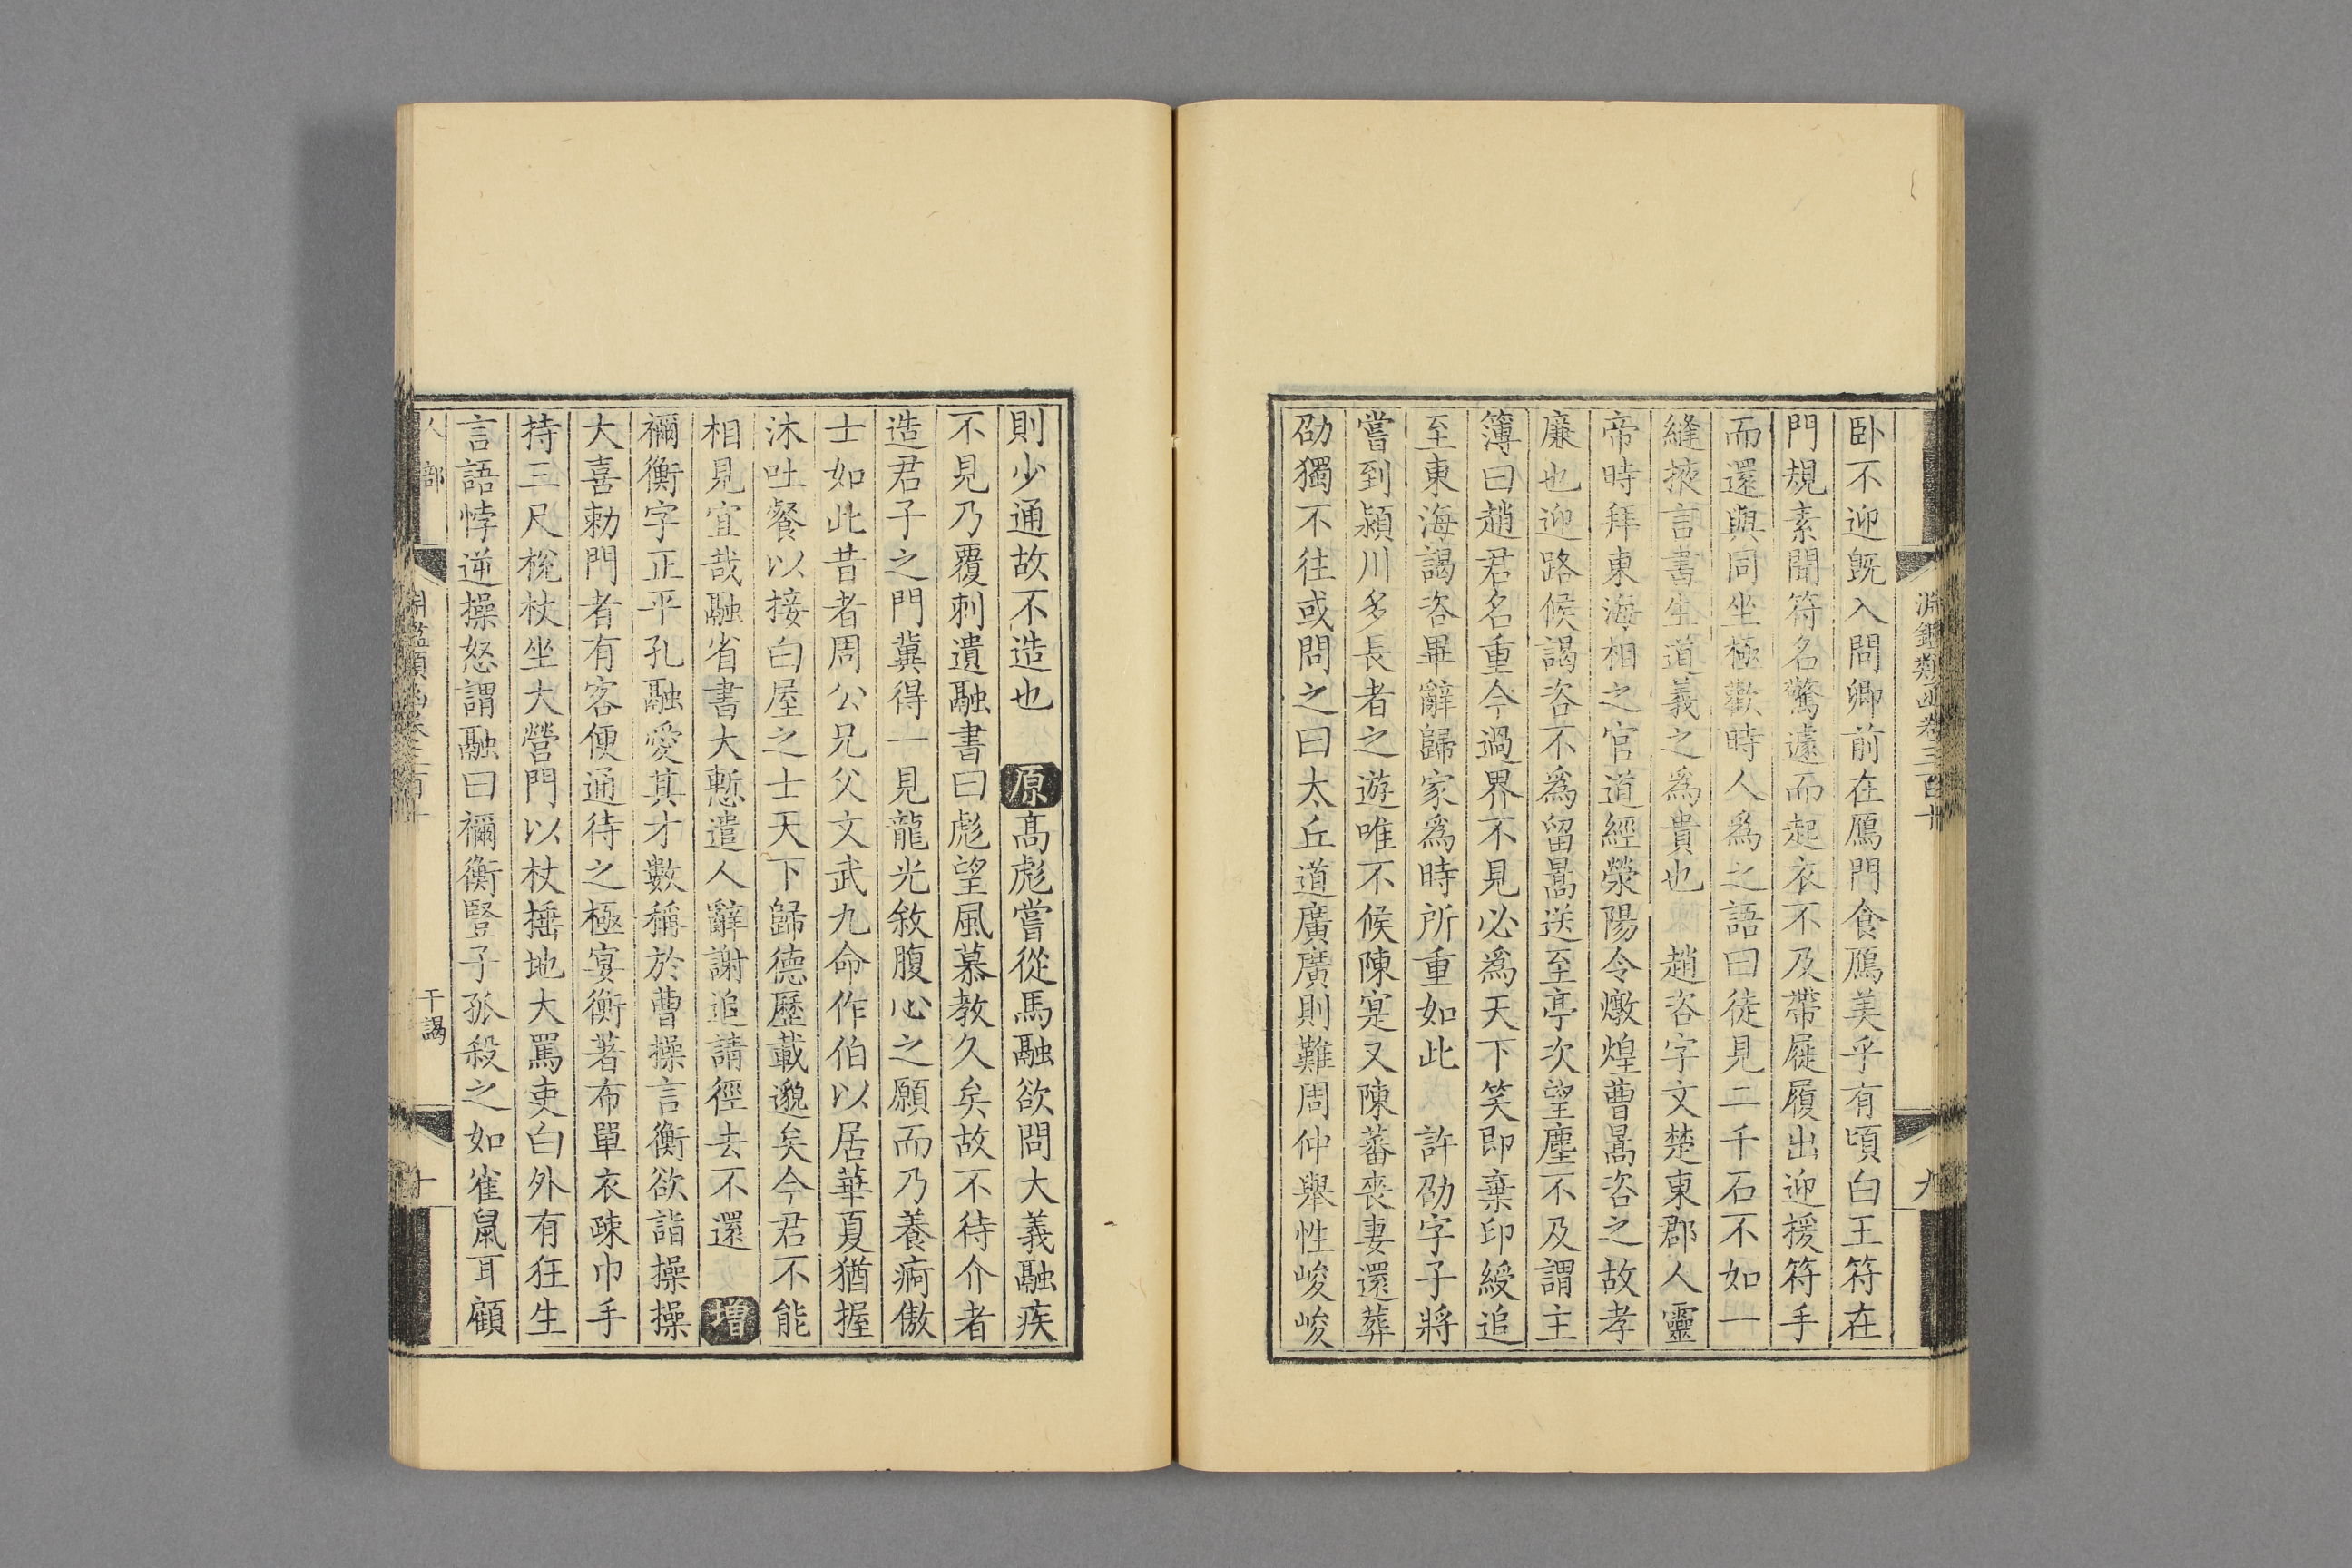 淵鑑類函卷三百十
九
卧不迎旣入問卿前在鴈門食鴈美乎有頃白王符在
門規素聞符名驚遽而起衣不及帶屣履出迎援符手
而還與同坐極歡時人爲之語曰徒見二千石不如一
縫掖言書生道義之爲貴也 趙咨字文楚東郡人靈
帝時拜東海相之官道經滎陽令燉煌曹暠咨之故孝
廉也迎路候謁咨不爲留暠送至亭次望塵不及謂主
簿曰趙君名重今過界不見必爲天下笑即棄印綬追
至東海謁咨畢辭歸家爲時所重如此 許劭字子將
嘗到潁川多長者之遊唯不候陳寔又陳蕃喪妻還葬
劭獨不往或問之曰太丘道廣廣則難周仲舉性峻峻
則少通故不造也 原高彪嘗從馬融欲問大義融疾
不見乃覆刺遺融書曰彪望風慕教久矣故不待介者
造君子之門冀得一見龍光敘腹心之願而乃養痾傲
士如此昔者周公兄父文武九命作伯以居華夏猶握
沐吐餐以接白屋之士天下歸德歷載邈矣今君不能
相見宜哉融省書大慙遣人辭謝追請徑去不還 增
禰衡字正平孔融愛其才數稱於曹操言衡欲詣操操
大喜勅門者有客便通待之極宴衡著布單衣疎巾手
持三尺梲杖坐大營門以杖捶地大罵吏白外有狂生
言語悖逆操怒謂融曰禰衡豎子孤殺之如雀鼠耳顧
人部
淵鑑類函卷三百十
干謁
十